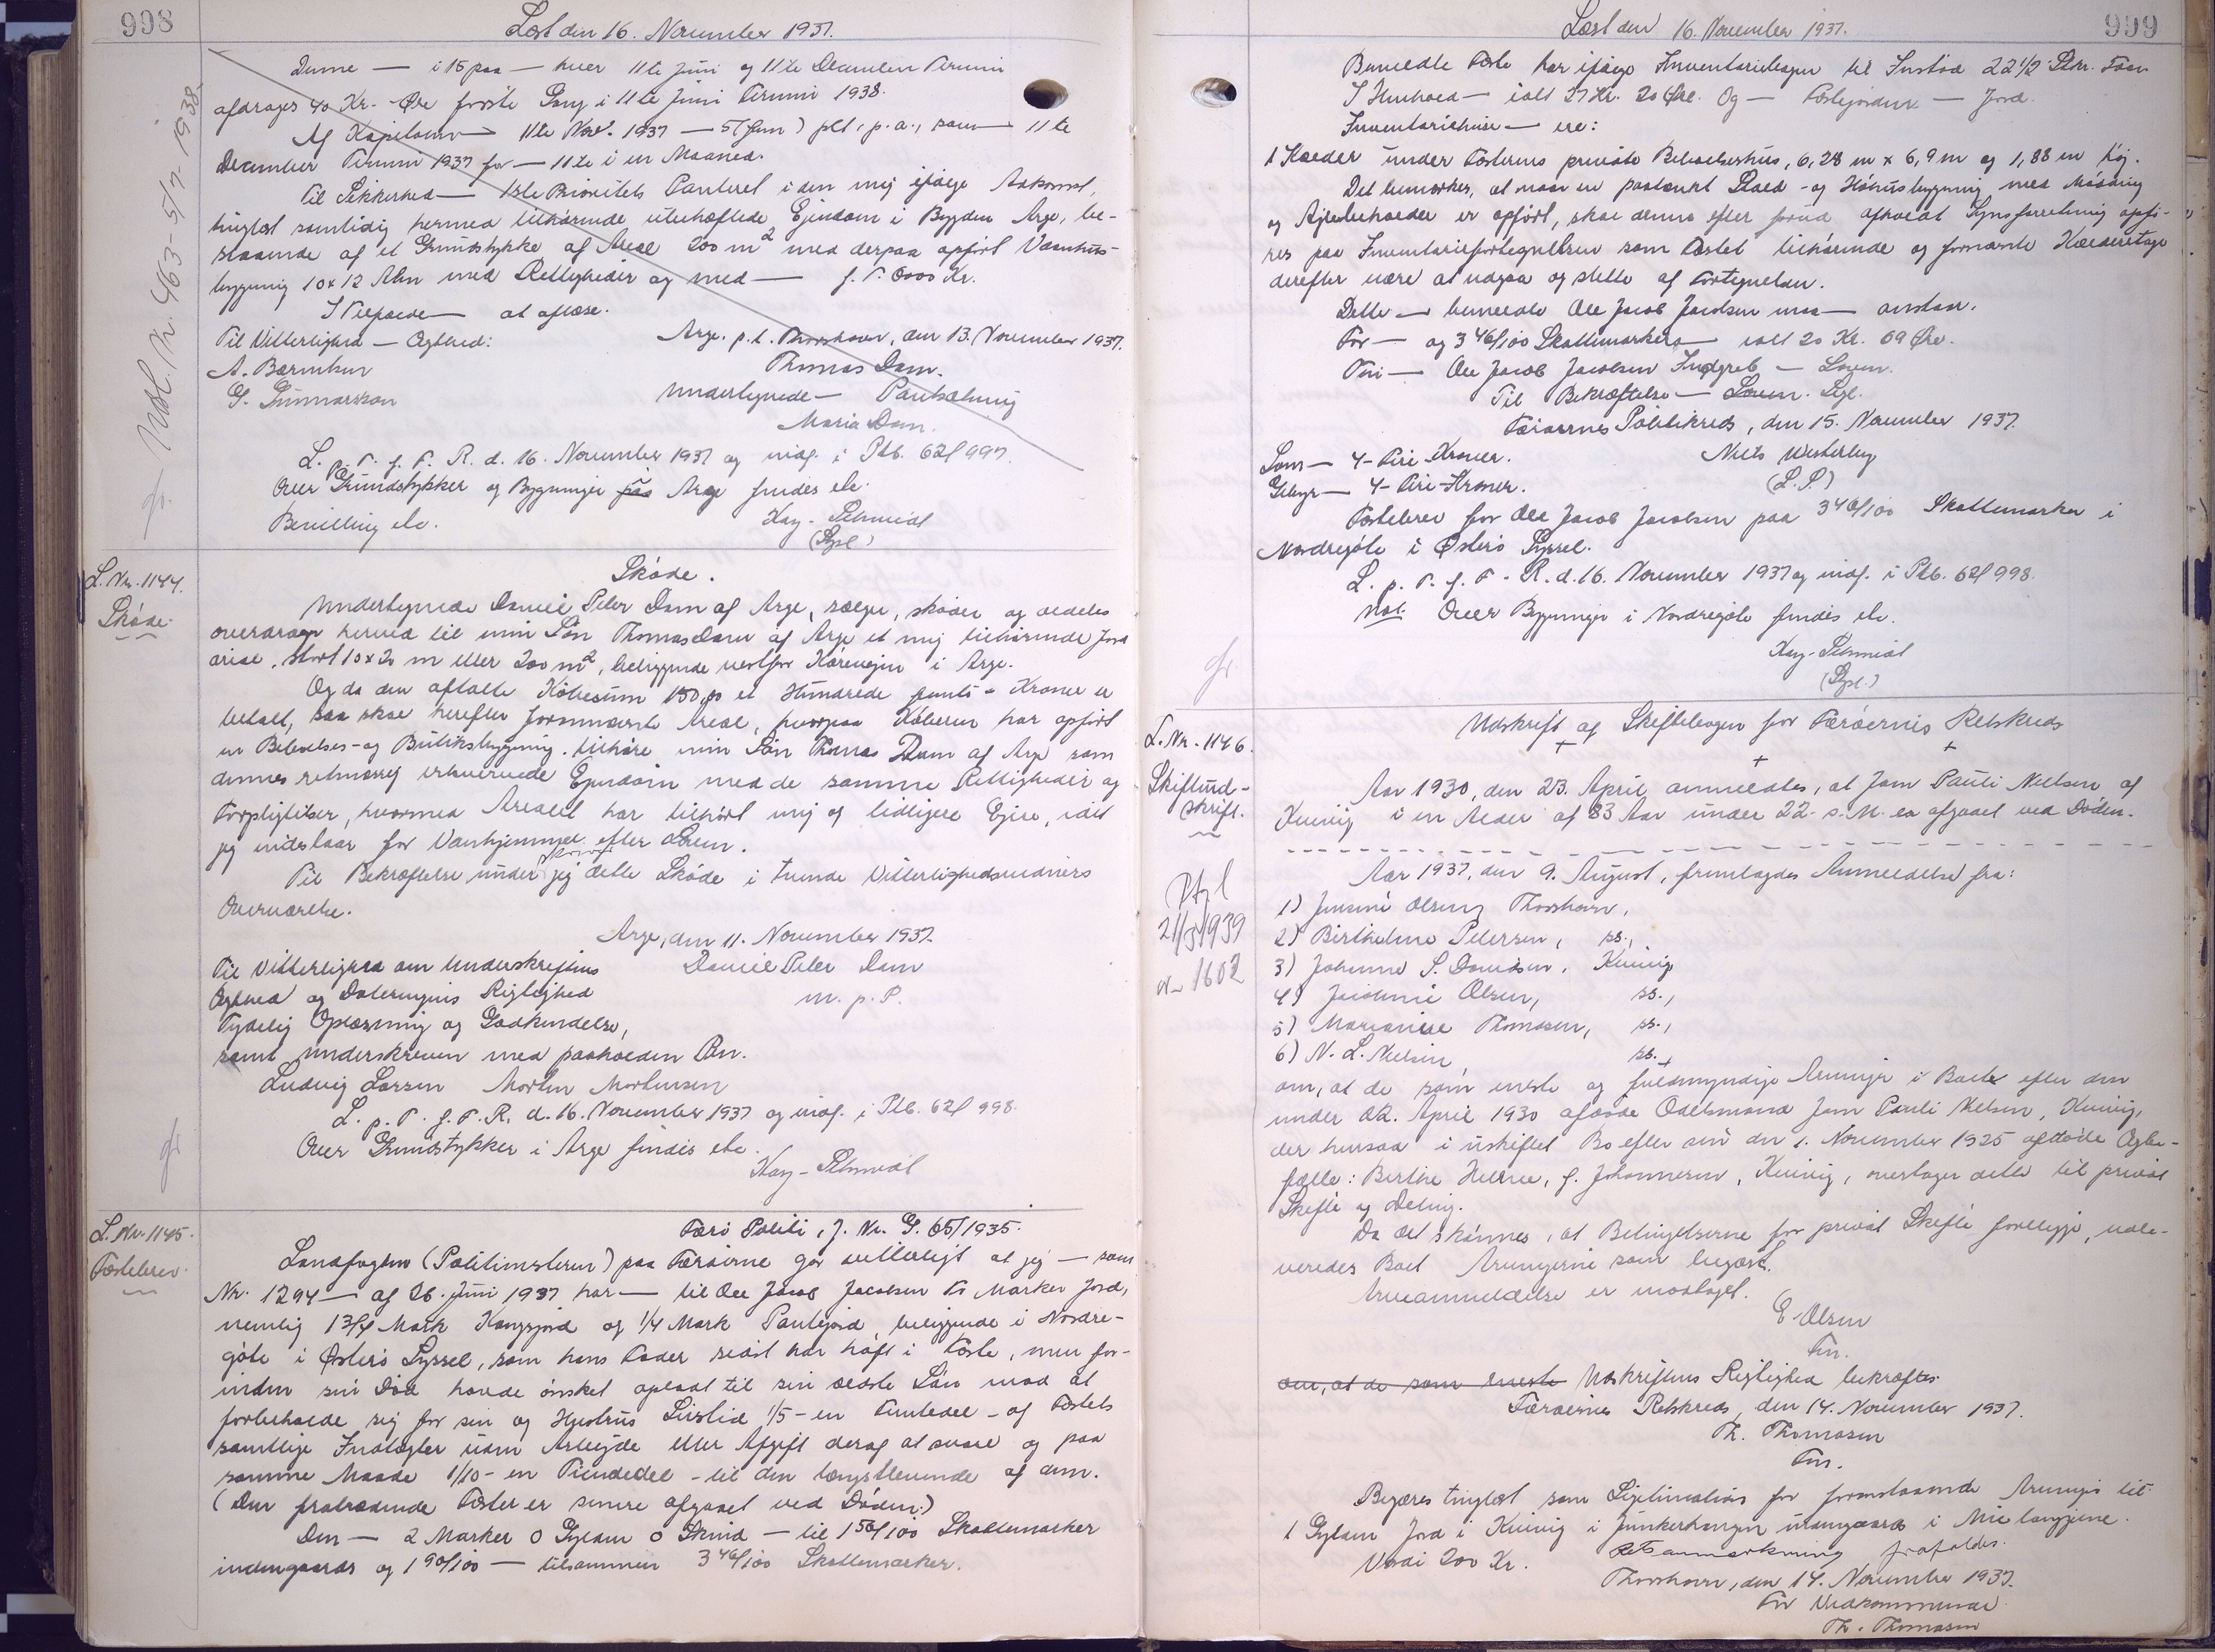 998
Læst den 16. November 1937.
Denne — i 15 paa — hver 11te Juni og 11te December Termin
afdrages 40 Kr. - Øre første Gang i 11te Juni Termin 1938.
Af Kapitalen — 11te Nov. 1937 — 5 (fem) pCt. p. a., som — 11te
December Termin 1937 for — 11te i en Maaned.
Til Sikkerhed — 1ste Prioritets Panteret i den mig ifølge Adkomst,
tinglæst samtidig hermed tilhørende ubehæftede Ejendom i Bygden Arge, be-
staaende af et Grundstykke af Areal 200 m² med derpaa opført Vaanhus-
bygning 10 x 12 Alen med Rettigheder og med — f. T. 8000 Kr.
I Tilfælde — at aflæse.
Til Vitterlighed — Ægthed:
Arge, p.t. Thorshavn, den 13. November 1937.
A. Bærentsen
Thomas Dam.
G. Gunnarsson
Undertegnede — Pantsætning
Maria Dam.
L. p. T. f. F. R. d. 16. November 1937 og indf. i Ptb. 62 f 997.
Over Grundstykker og Bygninger paa Arge findes etc.
Bevilling etc.
Kay-Schmidt
(Spl.)
gr. Udsl. Nr. 463 - 5/7 - 1938.
L. Nr. 1144.
Skøde.
Skøde.
Undertegnede Daniel Peter Dam af Arge, sælger, skøder og aldeles
overdrager herved til min Søn Thomas Dam af Arge et mig tilhørende Jord
areal, stort 10 x 20 m eller 200 m², beliggende vest for Kørevejen i Arge.
Og da den aftalte Købesum 150,00 et Hundrede femti - Kroner er
betalt, saa skal herefter fornævnte Areal, hvorpaa Køberen har opført
en Beboelses- og Butiksbygning tilhøre min Søn Thomas Dam af Arge som
dennes retmæssig erhvervede Ejendom med de samme Rettigheder og
Forpligtelser, hvormed Arealet har tilhørt mig og tidligere Ejere, idet
jeg indestaar for Vanhjemmel efter Loven.
Til Bekræftelse underskriver jeg dette Skøde i tvende Vitterlighedsvidners
Overværelse.
Arge, den 11. November 1937.
Til Vitterlighed om Underskriftens
Daniel Peter Dam
Ægthed og Dateringens Rigtighed
m. p. P.
Tydelig Oplæsning og Godkendelse,
samt underskreven med paaholden Pen.
Ludvig Larsen Morten Mortensen
L. p. T. f. F. R. d. 16. November 1937 og indf. i Ptb. 62 f 998.
Over Grundstykker i Arge findes etc.
Kay-Schmidt
gr.
L. Nr. 1145.
Fæstebrev.
Færø Politi, J. Nr. G. 65/1935.
Landfogden (Politimesteren) paa Færøerne gør vitterligt at jeg — som
Nr. 1294 — af 26. Juni 1937 har — til Ole Jacob Jacobsen To Marker Jord,
nemlig 1 3/4 Mark Kongsjord og 1/4 Mark Pantejord, beliggende i Nordre-
gøte i Østerø Syssel, som hans Fader sidst har haft i Fæste, men for-
inden sin Død havde ønsket opladt til sin ældste Søn mod at
forbeholde sig for sin og Hustrus Livstid 1/5 - en Femtedel - af Fæstets
samtlige Indtægter uden Arbejde eller Afgift deraf at svare og paa
samme Maade 1/10 - en Tiendedel - til den længstlevende af dem.
(Den fratrædende Fæster er senere afgaaet ved Døden.)
Den — 2 Marker 0 Gylden 0 Skind — til 1 56/100 Skattemarker
indengaards og 1 90/100 — tilsammen 3 46/100 Skattemarker.
999
Læst den 16. November 1937.
Bemeldte Fæste har ifølge Inventarieloven til Indstød 22 1/2 Stkr. Faar
I Henhold — ialt 27 Kr. 20 Øre. Og — Fæstejorden — Jord.
Inventariehuse — ere:
1 Kælder under Fæsterens private Beboelseshus, 6,28 m x 6,9 m og 1,88 m høj.
Det bemærkes, at naar en paatænkt Stald - og Høhusbygning med Mødding
og Ajlebeholder er opført, skal denne efter forud afholdt Synsforretning opfø-
res paa Inventariefortegnelsen som Fæstet tilhørende og fornævnte Kælderetage
derefter være at udgaa og slette af Fortegnelsen.
Dette — bemeldte Ole Jacob Jacobsen maa — anstaa.
For — og 3 46/100 Skattemarker — ialt 20 Kr. 09 Øre.
Thi — Ole Jacob Jacobsen Indgreb — Loven.
Til Bekræftelse — Loven. Sgl.
Færøernes Politikreds, den 15. November 1937.
Som — 4 - Fire Kroner.
Niels Westerby
Gebyr — 4 - Fire - Kroner.
(L. S.)
Fæstebrev for Ole Jacob Jacobsen paa 3 46/100 Skattemarker i
Nordregøte i Østerø Syssel.
L. p. T. f. F. R. d. 16. November 1937 og indf. i Ptb. 62 f 998.
Not. Over Bygninger i Nordregøte findes etc.
Kay-Schmidt
(Spl.)
gr.
L. Nr. 1146.
Skifteud-
skrift.
Udskrift af Skiftebogen for Færøernes Retskreds
Aar 1930, den 23. April anmeldtes, at Jom Pauli Nielsen af
Kvivig i en Alder af 83 Aar under 22. s. M. er afgaaet ved Døden.
Aar 1937, den 9. August, fremlagdes Anmeldelse fra:
1) Jensine Olsen, Thorshavn,
2) Birthelme Petersen, ss.,
3) Johanne S. Davidsen, Kvivig
4) Jacobine Olsen, ss.,
5) Marianne Thomasen, ss.,
6) N. L. Nielsen ss.,
om, at de som eneste og fuldmyndige Arvinger i Boet efter den
under 22. April 1930 afdøde Odelsmand Jom Pauli Nielsen, Kvivig,
der hensad i uskiftet Bo efter sin den 1. November 1925 afdøde Ægte-
fælle: Birthe Helene, f. Johannesen, Kvivig, overtager dette til privat
Skifte og Deling.
Da det skønnes, at Betingelserne for privat Skifte foreligge, udle-
veredes Boet Arvingerne som begært.
Arveanmeldelse er modtaget.
E. Olsen
Fm.
om, at de som eneste Udskriftens Rigtighed bekræftes.
Færøernes Retskreds, den 14. November 1937.
Th. Thomasen
Fm.
Begæres tinglæst som Legitimation for foranstaaende Arvinger til
1 Gylden Jord i Kvivig i Junkerhaugen udengaards i Mie laugjene.
Værdi 200 Kr. Retsanmærkning frafaldes.
Thorshavn, den 14. November 1937.
For Vedkommende
Th. Thomasen
Ptgl
21/3 1939
Nr. 1602